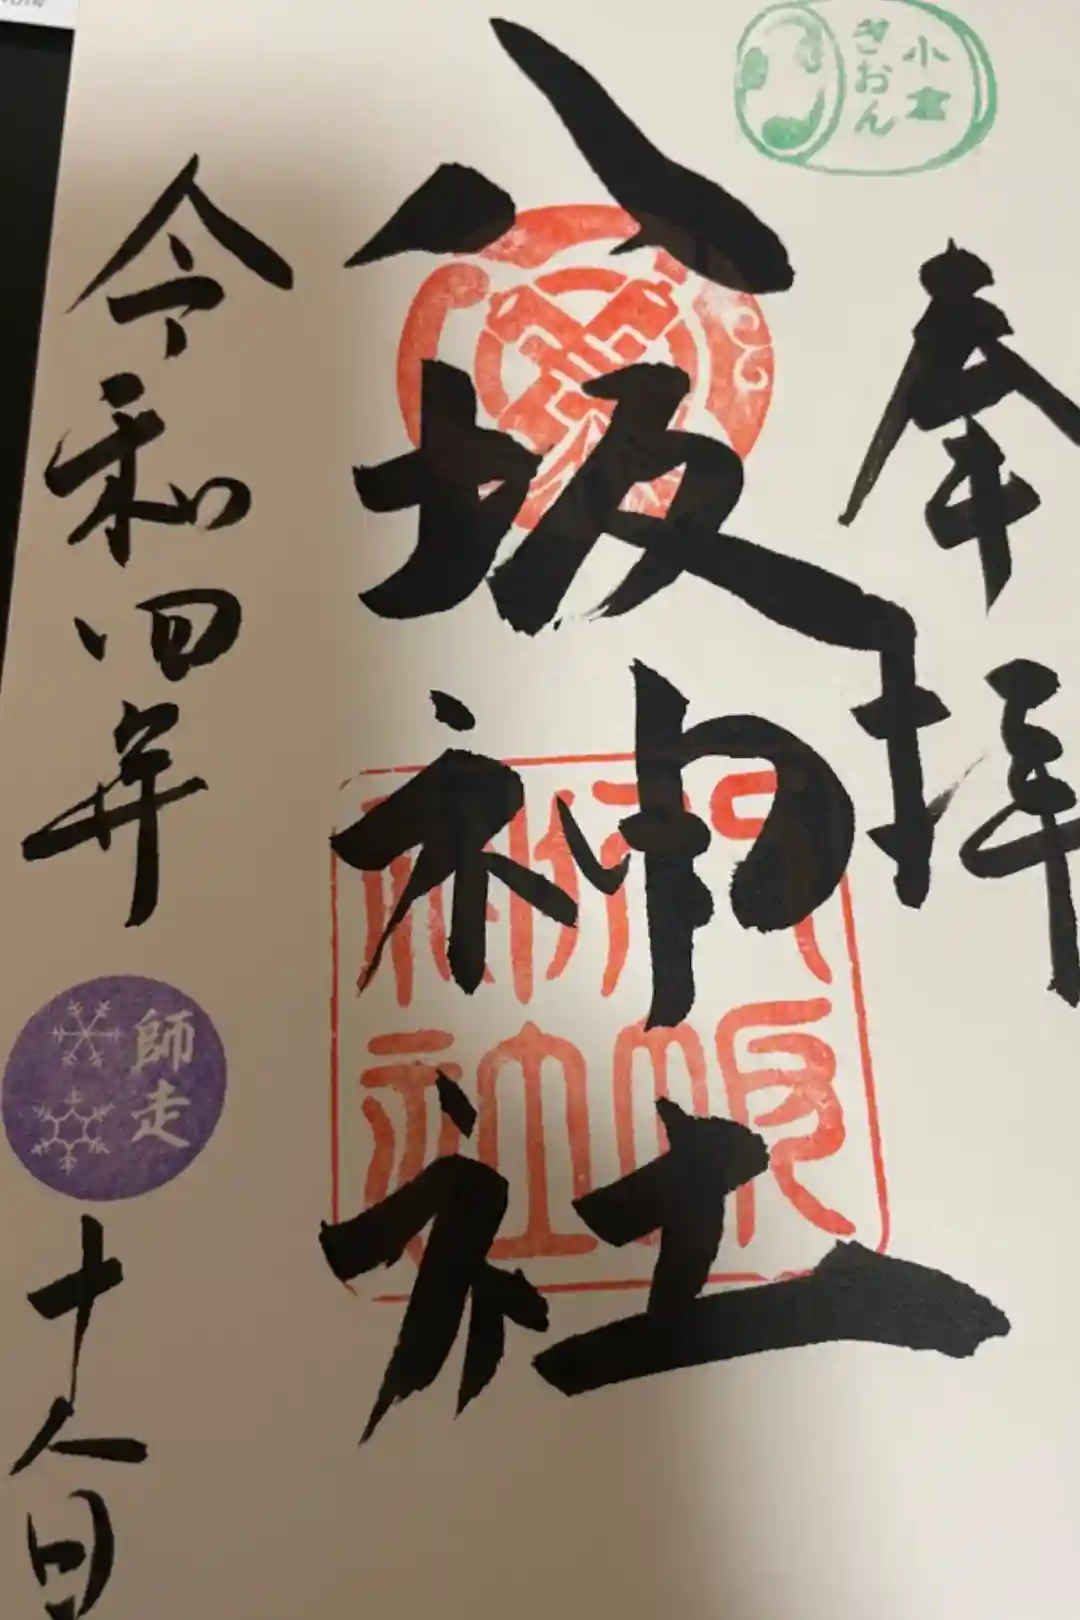 小倉
ぎおん
奉拝
八坂神社
八坂神社
令和四年
師走
十八日